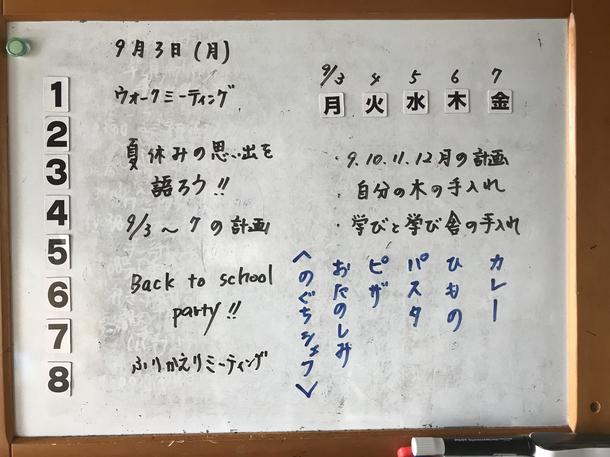 9月3日(月)
1
2
3
4
5
6
7
8
ウォークミーティング
夏休みの思い出を
語ろう!!
9/3～7の計画
Back to school
party!!
ふりかえりミーティング
9/3 4 5 6 7
月 火 水 木 金
・9.10.11.12月の計画
・自分の木の手入れ
・学びと学び舎の手入れ
カレー
ひもの
パスタ
ピザ
おたのしみ
＜のぐちシェフ＞